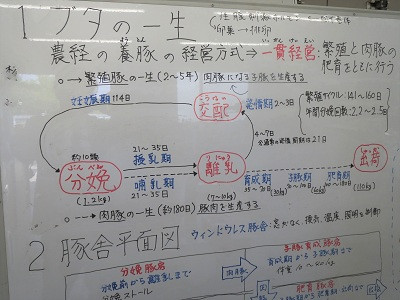 1 ブタの一生
卵巣→排卵
農経の養豚の経営方式⇒一貫経営:繁殖と肉豚の
ようとん
いっかんけいえい
肥育をともに行う
○→繁殖豚の一生(2~5年)肉豚になる子豚を生産する
妊娠期114日
こうはい
交配
発情期 2~3日
繁殖サイクル:141~160日
年間分娩回数:2.2~2.5回
4~7日
約10頭
ぶんべん
分娩
(1.2kg)
21~35日
授乳期
21~35日
哺乳期
りにゅう
離乳
(7~10kg)
育成期
子豚期
肥育期
出荷
(110kg)
○--→肉豚の一生(約180日)豚肉を生産する
2 豚舎平面図
ウィンドウレス豚舎:窓がなく、換気、温度、照明を制御
分娩豚舎
分娩期から離乳まで
分娩ストール
子豚育成豚舎
育成期から子豚期まで
肉豚
肥育豚舎